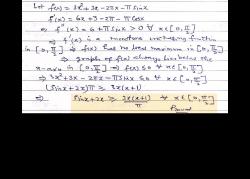 Let f(x) = 3x²+3x-2πx-π sinx
f'(x) = 6x+3-2π-π cosx
⇒ f''(x) = 6+π sinx > 0 ∀ x∈[0, π/2]
⇒ f'(x) is a increasing function
in [0, π/2] ⇒ f(x) has no local maximum in [0, π/2]
⇒ graph of f(x) always lies below the
x-axis in [0, π/2] ⇒ f(x) ≤ 0 ∀ x∈[0, π/2]
⇒ 3x²+3x-2πx-π sinx ≤ 0 ∀ x∈[0, π/2]
(sinx+2x)π ≥ 3x(x+1)
⇒ sinx+2x ≥ 3x(x+1)/π ∀ x∈[0, π/2]
Proved